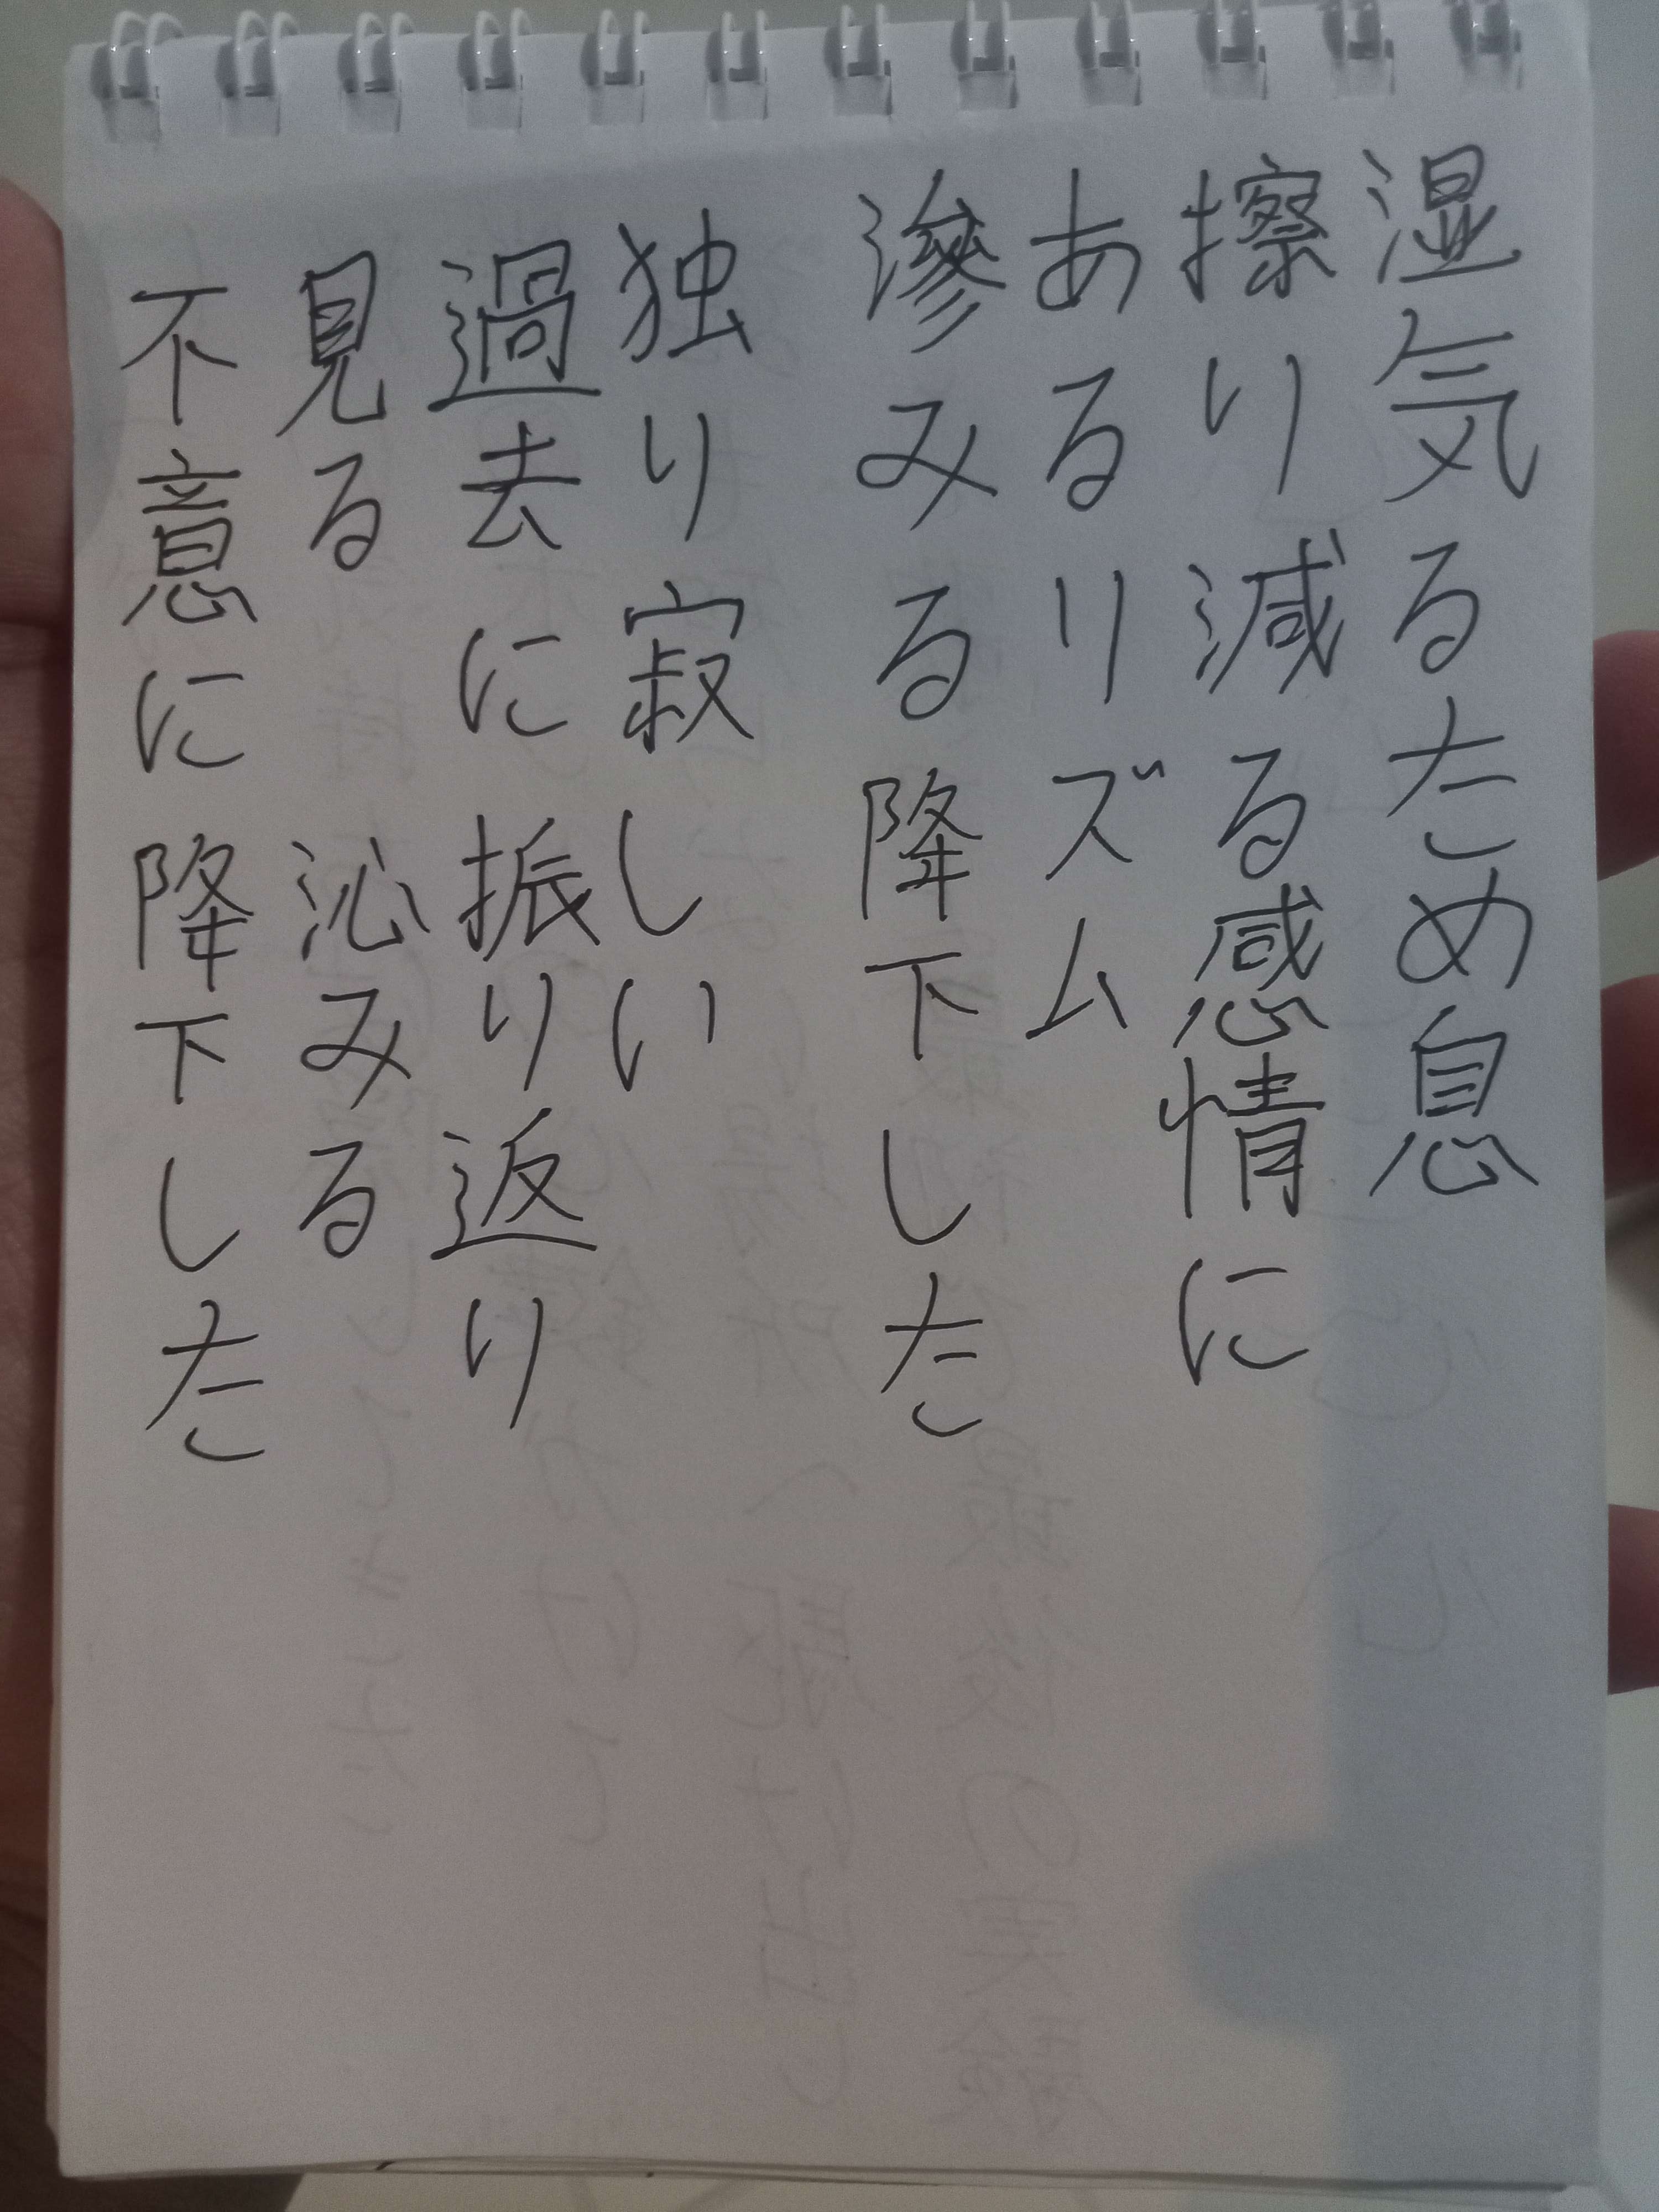 湿気るため息
擦り減る感情に
あるリズム
滲みる降下した
独り寂しい
過去に振り返り
見る 沁みる
不意に降下した